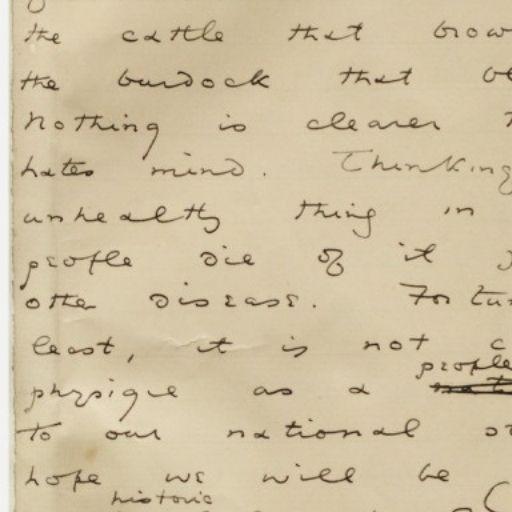 the cattle that brow
the burdock that bl
Nothing is clearer
hates mind. Thinking
unhealthy thing in
people die of it
other disease. Fortun
least, it is not c
people
physique as a
to our national
hope we will be
historic